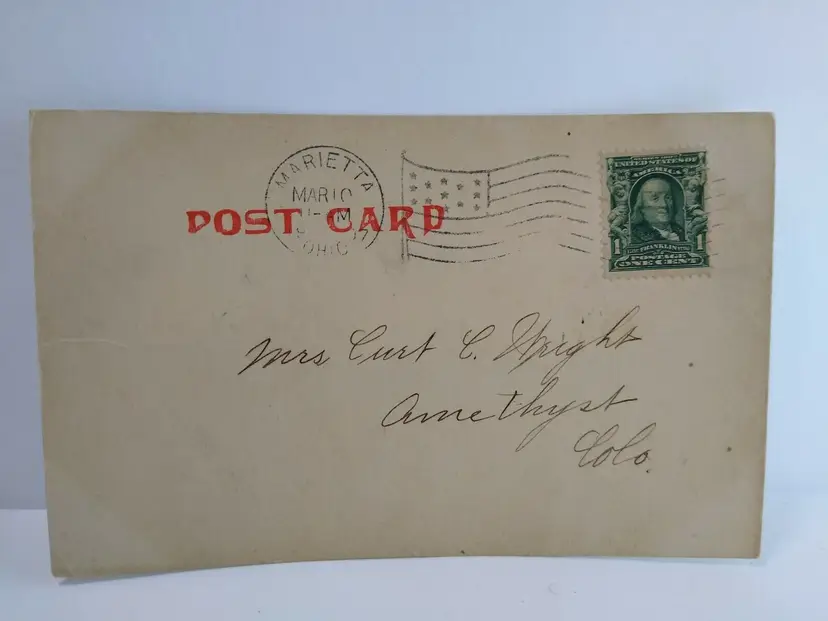 MARIETTA
MAR 10
OHIO
POST CARD
UNITED STATES OF
AMERICA
1 FRANKLIN 1
POSTAGE
ONE CENT
Mrs Curt C. Wright
Amethyst
Colo.